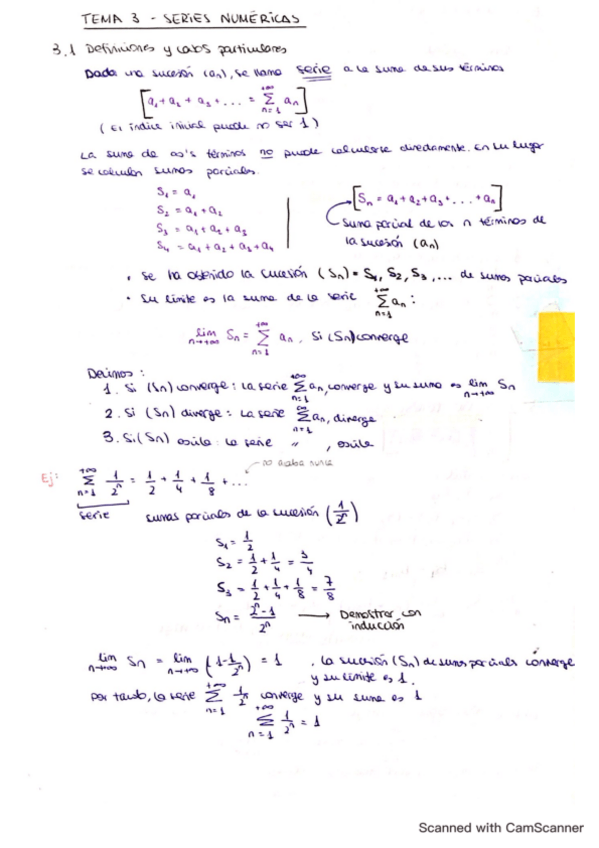 TEMA 3 - SERIES NUMÉRICAS
3.1 Definiciones y casos particulares
Dada una sucesión (an), se llama serie a la suma de sus términos
[a₁ + a₂ + a₃ + ... = Σ_{n=1}^{+∞} an]
(El índice inicial puede no ser 1)
La suma de ∞'s términos no puede calcularse directamente. En su lugar
se calculan sumas parciales.
S₁ = a₁
S₂ = a₁ + a₂
S₃ = a₁ + a₂ + a₃
S₄ = a₁ + a₂ + a₃ + a₄
[Sn = a₁ + a₂ + a₃ + ... + an]
Suma parcial de los n términos de
la sucesión (an)
• Se ha obtenido la sucesión (Sn) = S₁, S₂, S₃, ... de sumas parciales
• Su límite es la suma de la serie Σ_{n=1}^{+∞} an :
lim_{n→+∞} Sn = Σ_{n=1}^{+∞} an, si (Sn) converge
Decimos :
1. Si (Sn) converge : la serie Σ_{n=1}^{+∞} an, converge y su suma es lim_{n→+∞} Sn
2. Si (Sn) diverge : La serie Σ_{n=1}^{∞} an, diverge
3. Si (Sn) oscila : La serie " , oscila
∞ acaba nunca
Ej: Σ_{n=1}^{+∞} 1/2ⁿ = 1/2 + 1/4 + 1/8 + ...
serie sumas parciales de la sucesión (1/2ⁿ)
S₁ = 1/2
S₂ = 1/2 + 1/4 = 3/4
S₃ = 1/2 + 1/4 + 1/8 = 7/8
Sn = 2ⁿ-1/2ⁿ → Demostrar con
inducción
lim_{n→+∞} Sn = lim_{n→+∞} (1-1/2ⁿ) = 1 , la sucesión (Sn) de sumas parciales converge
y su límite es 1.
por tanto, la serie Σ_{n=1}^{+∞} 1/2ⁿ converge y su suma es 1
Σ_{n=1}^{+∞} 1/2ⁿ = 1
Scanned with CamScanner